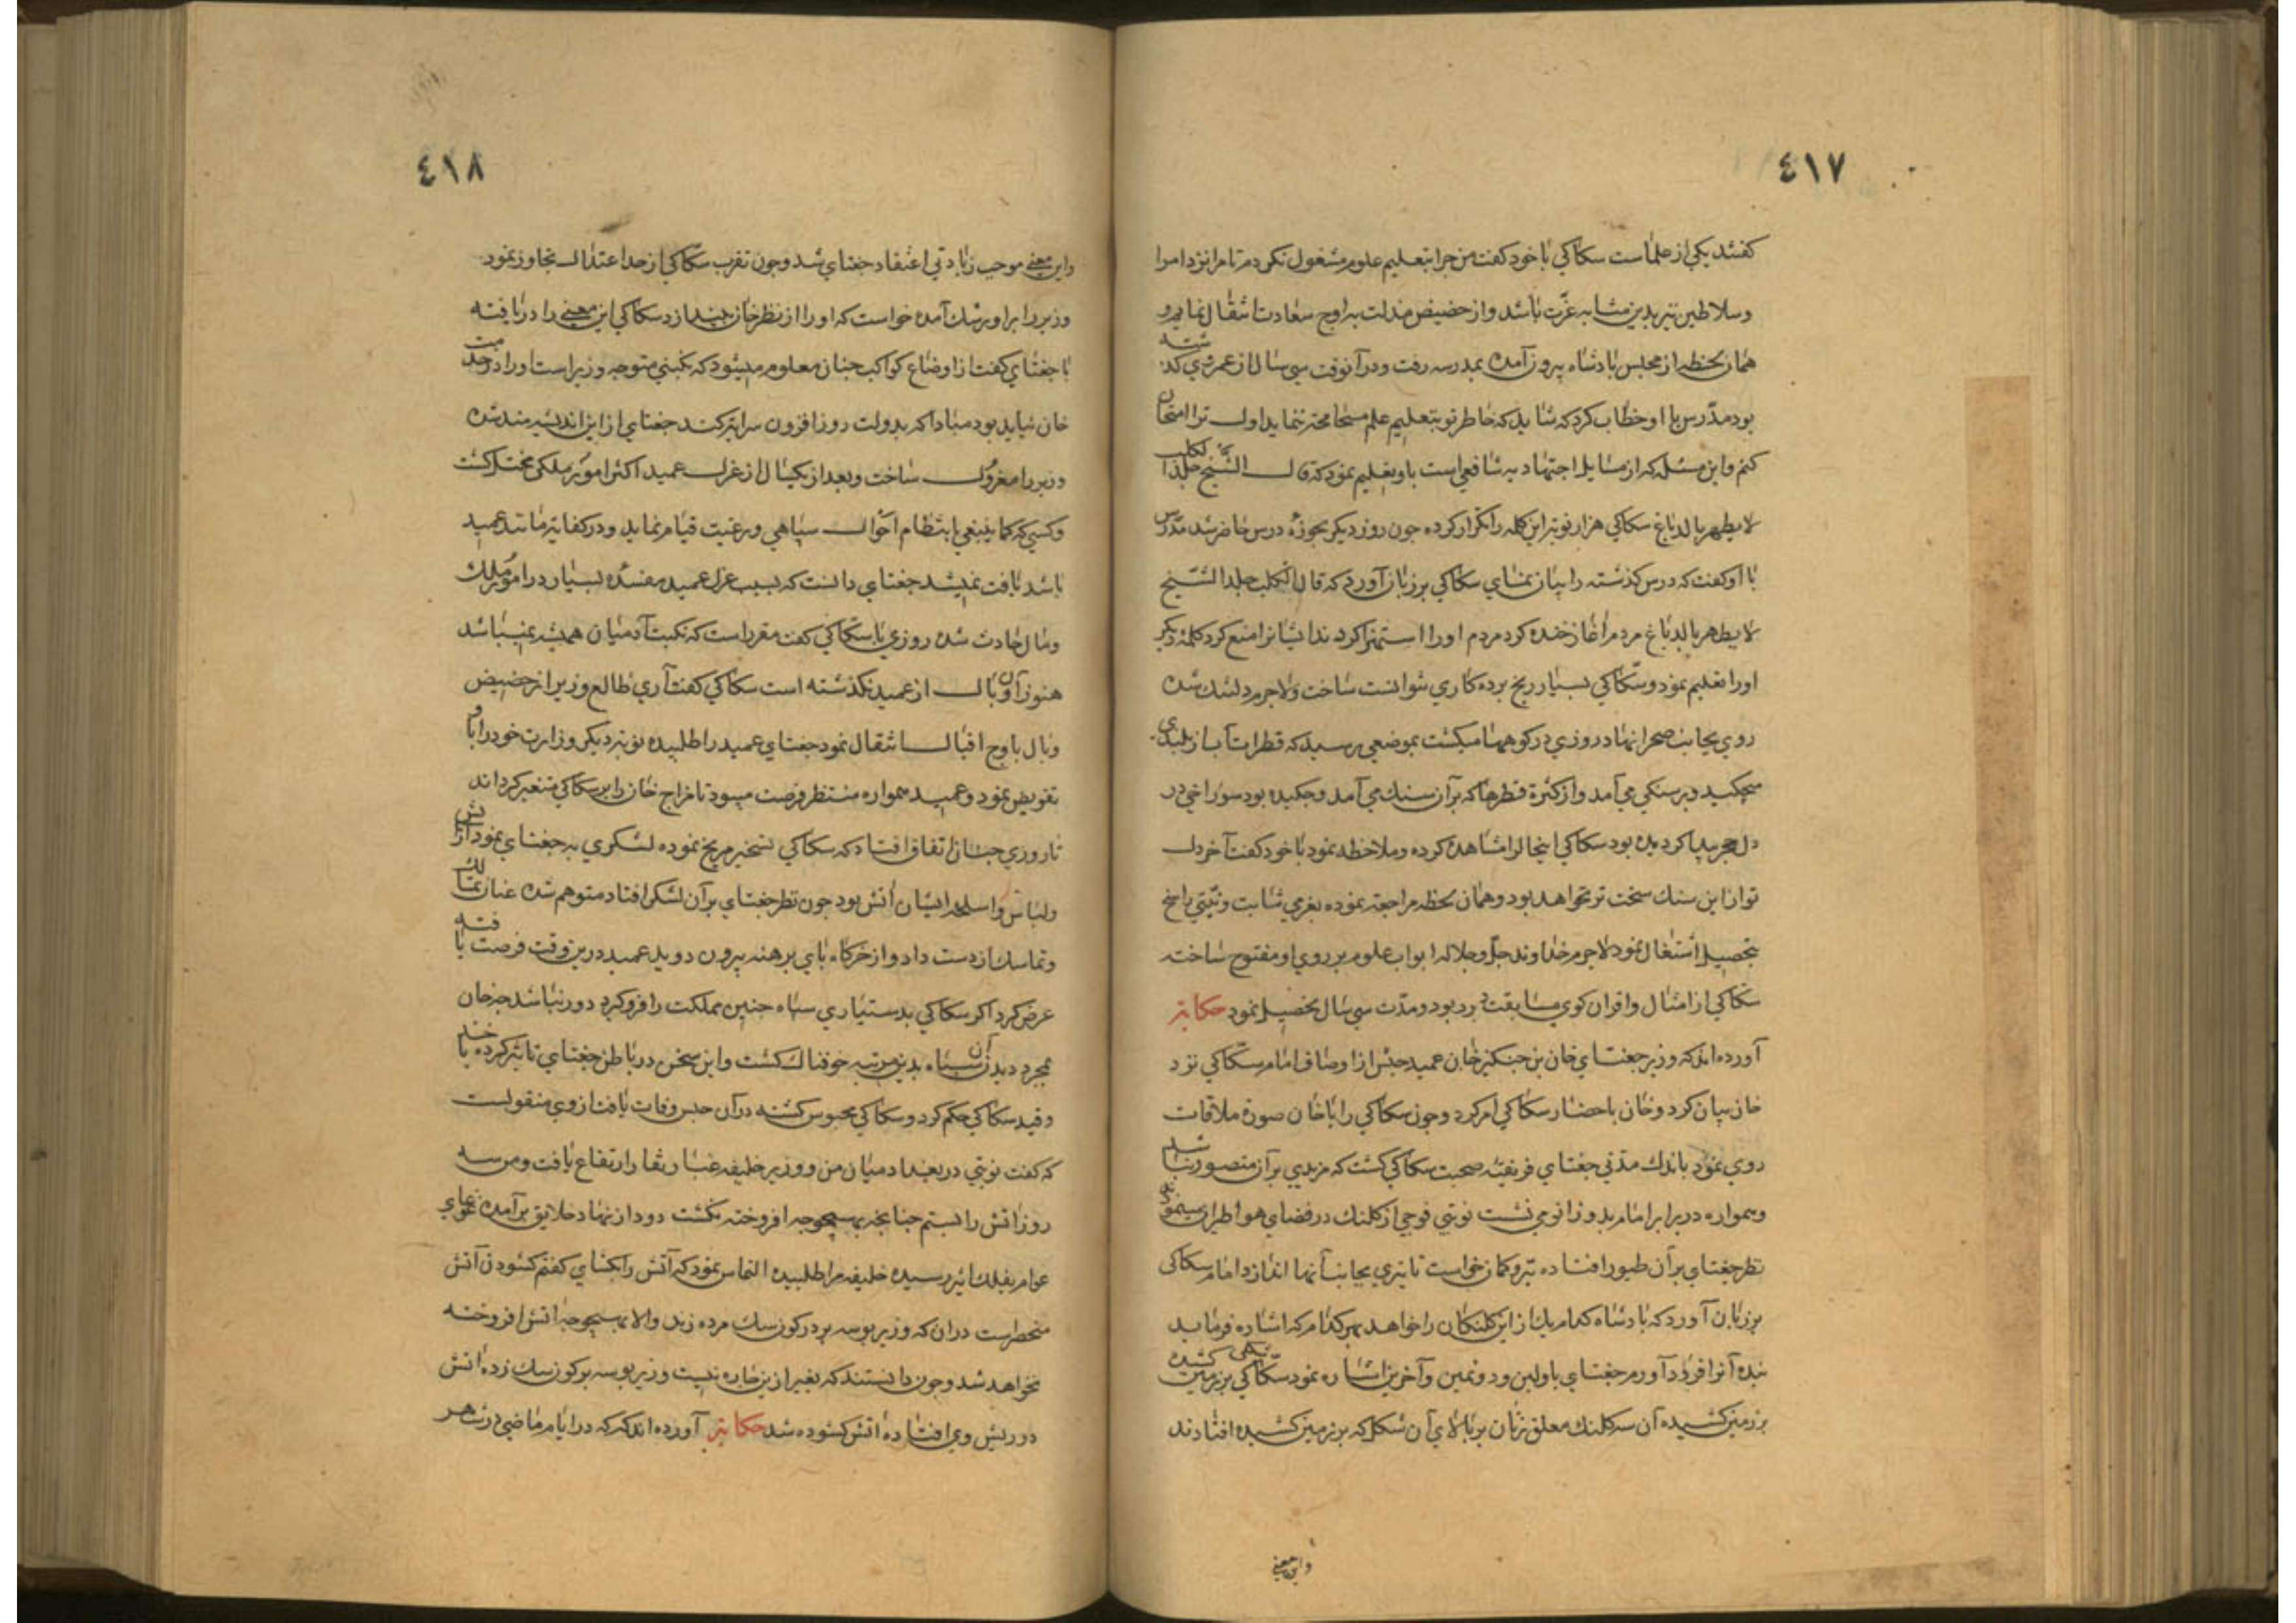 ٤١٧
كفتند يكي از علماست سكاكي با خود كفت من جرا بتعليم علوم مشغول نكردم تا مرا نزد امرا
وسلاطين نيز بدين مشابه عزّت باشد واز حضيض مذلت به اوج سعادت انتقال نمايم و
همان لحظه از مجلس بادشاه بيرون آمده بمدرسه رفت ودر آنوقت سي سال از عمر وي كذشته
بود مدّرس با او خطاب كرد كه شايد كه خاطر تو بتعليم علم مسحا محته ننمايد اول ترا امتحان
كنم واين مسئله كه از مسايل اجتهاديه شافعي است باو تعليم نمود كه قال الشيخ جلد الكلب
لا يطهر بالدباغ سكاكي هزار نوبت اين كلمه را تكرار كرده جون روز ديكر بحوزهٔ درس حاضر شد مدّرس
با او كفت كه درس كذشته را بيان نماي سكاكي بر زبان آورد كه قال الكلب جلد الشّيخ
لا يطهر بالدباغ مردم آغاز خنده كرد مردم او را استهزا كردند ايشانرا منع كرد كلمهٔ ديكر
اورا تعليم نمود وسكّاكي بسيار رنج برده كاري نتوانست ساخت ولاجرم دلتنك شده
روي بجانب صحرا نهاد روزي در كوهها ميكشت بموضعي رسيد كه قطرات آب از بلندي
ميچكيد وبر سنكي مي آمد واز كثرة قطرها كه بر آن سنك مي آمد وجكيده بود سوراخي در
دل حجر پيدا كرديده بود سكاكي اينحالرا مشاهده كرده وملاحظه نمود با خود كفت آخر دل
تو از اين سنك سخت تر نخواهد بود وهمان لحظه مراجعة نموده بعزمي ثابت ونيّتي راسخ
بتحصيل اشتغال نمود لاجرم خداوند جلّ وجلاله ابواب علوم بر روي او مفتوح ساخته
سكاكي از امثال واقران كوي مسابقت برد بود ومدّت سي سال تحصيل نمود حكاية
آورده اند كه وزير جغتاي خان بن جنكيز خان عميد حبش از اوصاف امام سكّاكي نزد
خان بيان كرد وخان باحضار سكاكي امر كرد وجون سكاكي را با خان صورة ملاقات
روي نمود باندك مدّتي جغتاي فريفتهٔ صحبت سكاكي كشت كه مزيدي بر آن متصور نباشد
وهمواره در برابر امام بدو زانو مي نشست نوبتي فوجي از كلنك در فضاي هوا طيران مينمود
نظر جغتاي بر آن طيور افتاده تير وكمان خواست تا تيري بجانب آنها اندازد امام سكاكي
بر زبان آورد كه بادشاه كدام يك از اين كلنكان را خواهد بهر كدام كه اشاره فرمايد
بنده آنرا فرود آورم جغتاي باولين ودومين وآخرين اشاره نمود سكّاكي بر زمين شكلي كشيده
بر زمين كشيده آن سه كلنك معلق زنان بر بالاي آن شكل كه بر زمين كشيده افتادند
واين معني
٤١٨
واين معني موجب زيادتي اعتقاد جغتاي شد وجون تقرب سكّاكي از حد اعتدال تجاوز نمود
وزير را بر او رشك آمده خواست كه او را از نظر خان بيندازد سكاكي اين معني را دريافته
با جغتاي كفت از اوضاع كواكب جنان معلوم ميشود كه نكبتي متوجه وزير است اورا در خدمت
خان نبايد بود مبادا كه بدولت روز افزون سرايتر كند جغتاي از اين انديشه مند شده
وزير را معزول ساخت وبعد از يكسال از عزل عميد اكثر امور ملكي مختل كشت
وكسي كه كما ينبغي بانتظام احوال سپاهي ورعيت قيام نمايد ودر كفايه مانند عميد
باشد يافت نميشد جغتاي دانست كه بسبب عزل عميد مفسدهٔ بسيار در امور ملك
ومال حادث شده روزي با سكّاكي كفت مقرر است كه نكبت آدميان هميشه نميباشد
هنوز آن وبال از عميد نكذشته است سكاكي كفت آري طالع وزير از حضيض
وبال باوج اقبال انتقال نمود جغتاي عميد را طلبيده نوبتر ديكر وزارت خود را باو
تفويض نمود وعميد همواره منتظر فرصت ميبود تا مزاج خان را بر سكاكي متغير كرداند
تا روزي جنان اتفاق افتاد كه سكاكي تسخير مريخ نموده لشكري به جغتاي نمود از آتش
ولباس واسلحه ايشان آتش بود جون نظر جغتاي بر آن لشكر افتاد متوهم شده عنان تمالك
وتماسك از دست داد واز خركاه باي برهنه بيرون دويد عميد درين وقت فرصت يافته
عرض كرد اكر سكاكي بدستياري سپاه جنين مملكت را فرو كيرد دور نباشد جه خان
بمجرد ديدن آن سپاه بدين مرتبه خوفناك كشت واين سخن در باطن جغتاي تاثير كرده
وقيد سكاكي حكم كرد وسكاكي محبوس كشته در آن حبس وفات يافت از وي منقولست
كه كفت نوبتي در بغداد ميان من ووزير خليفه غبار نقار ارتفاع يافت ومن سه
روز آتش را ببستم جنانجه بهيچوجه افروخته نكشت دود از نهاد خلايق برآمده غوغاي
عوام بفلك اثير رسيده خليفه مرا طلبيده التماس نمود كه آتش را بكشاي كفتم كشودن آتش
منحصر است در ان كه وزير بوسه بر در كون سك مرده زند والا بهيچوجه آتش افروخته
نخواهد شد وجون دانستند كه بغير از ين جاره نيست وزير بوسه بر كون سك زده آتش
در ريش وي افتاده آتش كشوده شد حكاية آورده اند كه در ايام ماضي در شهر